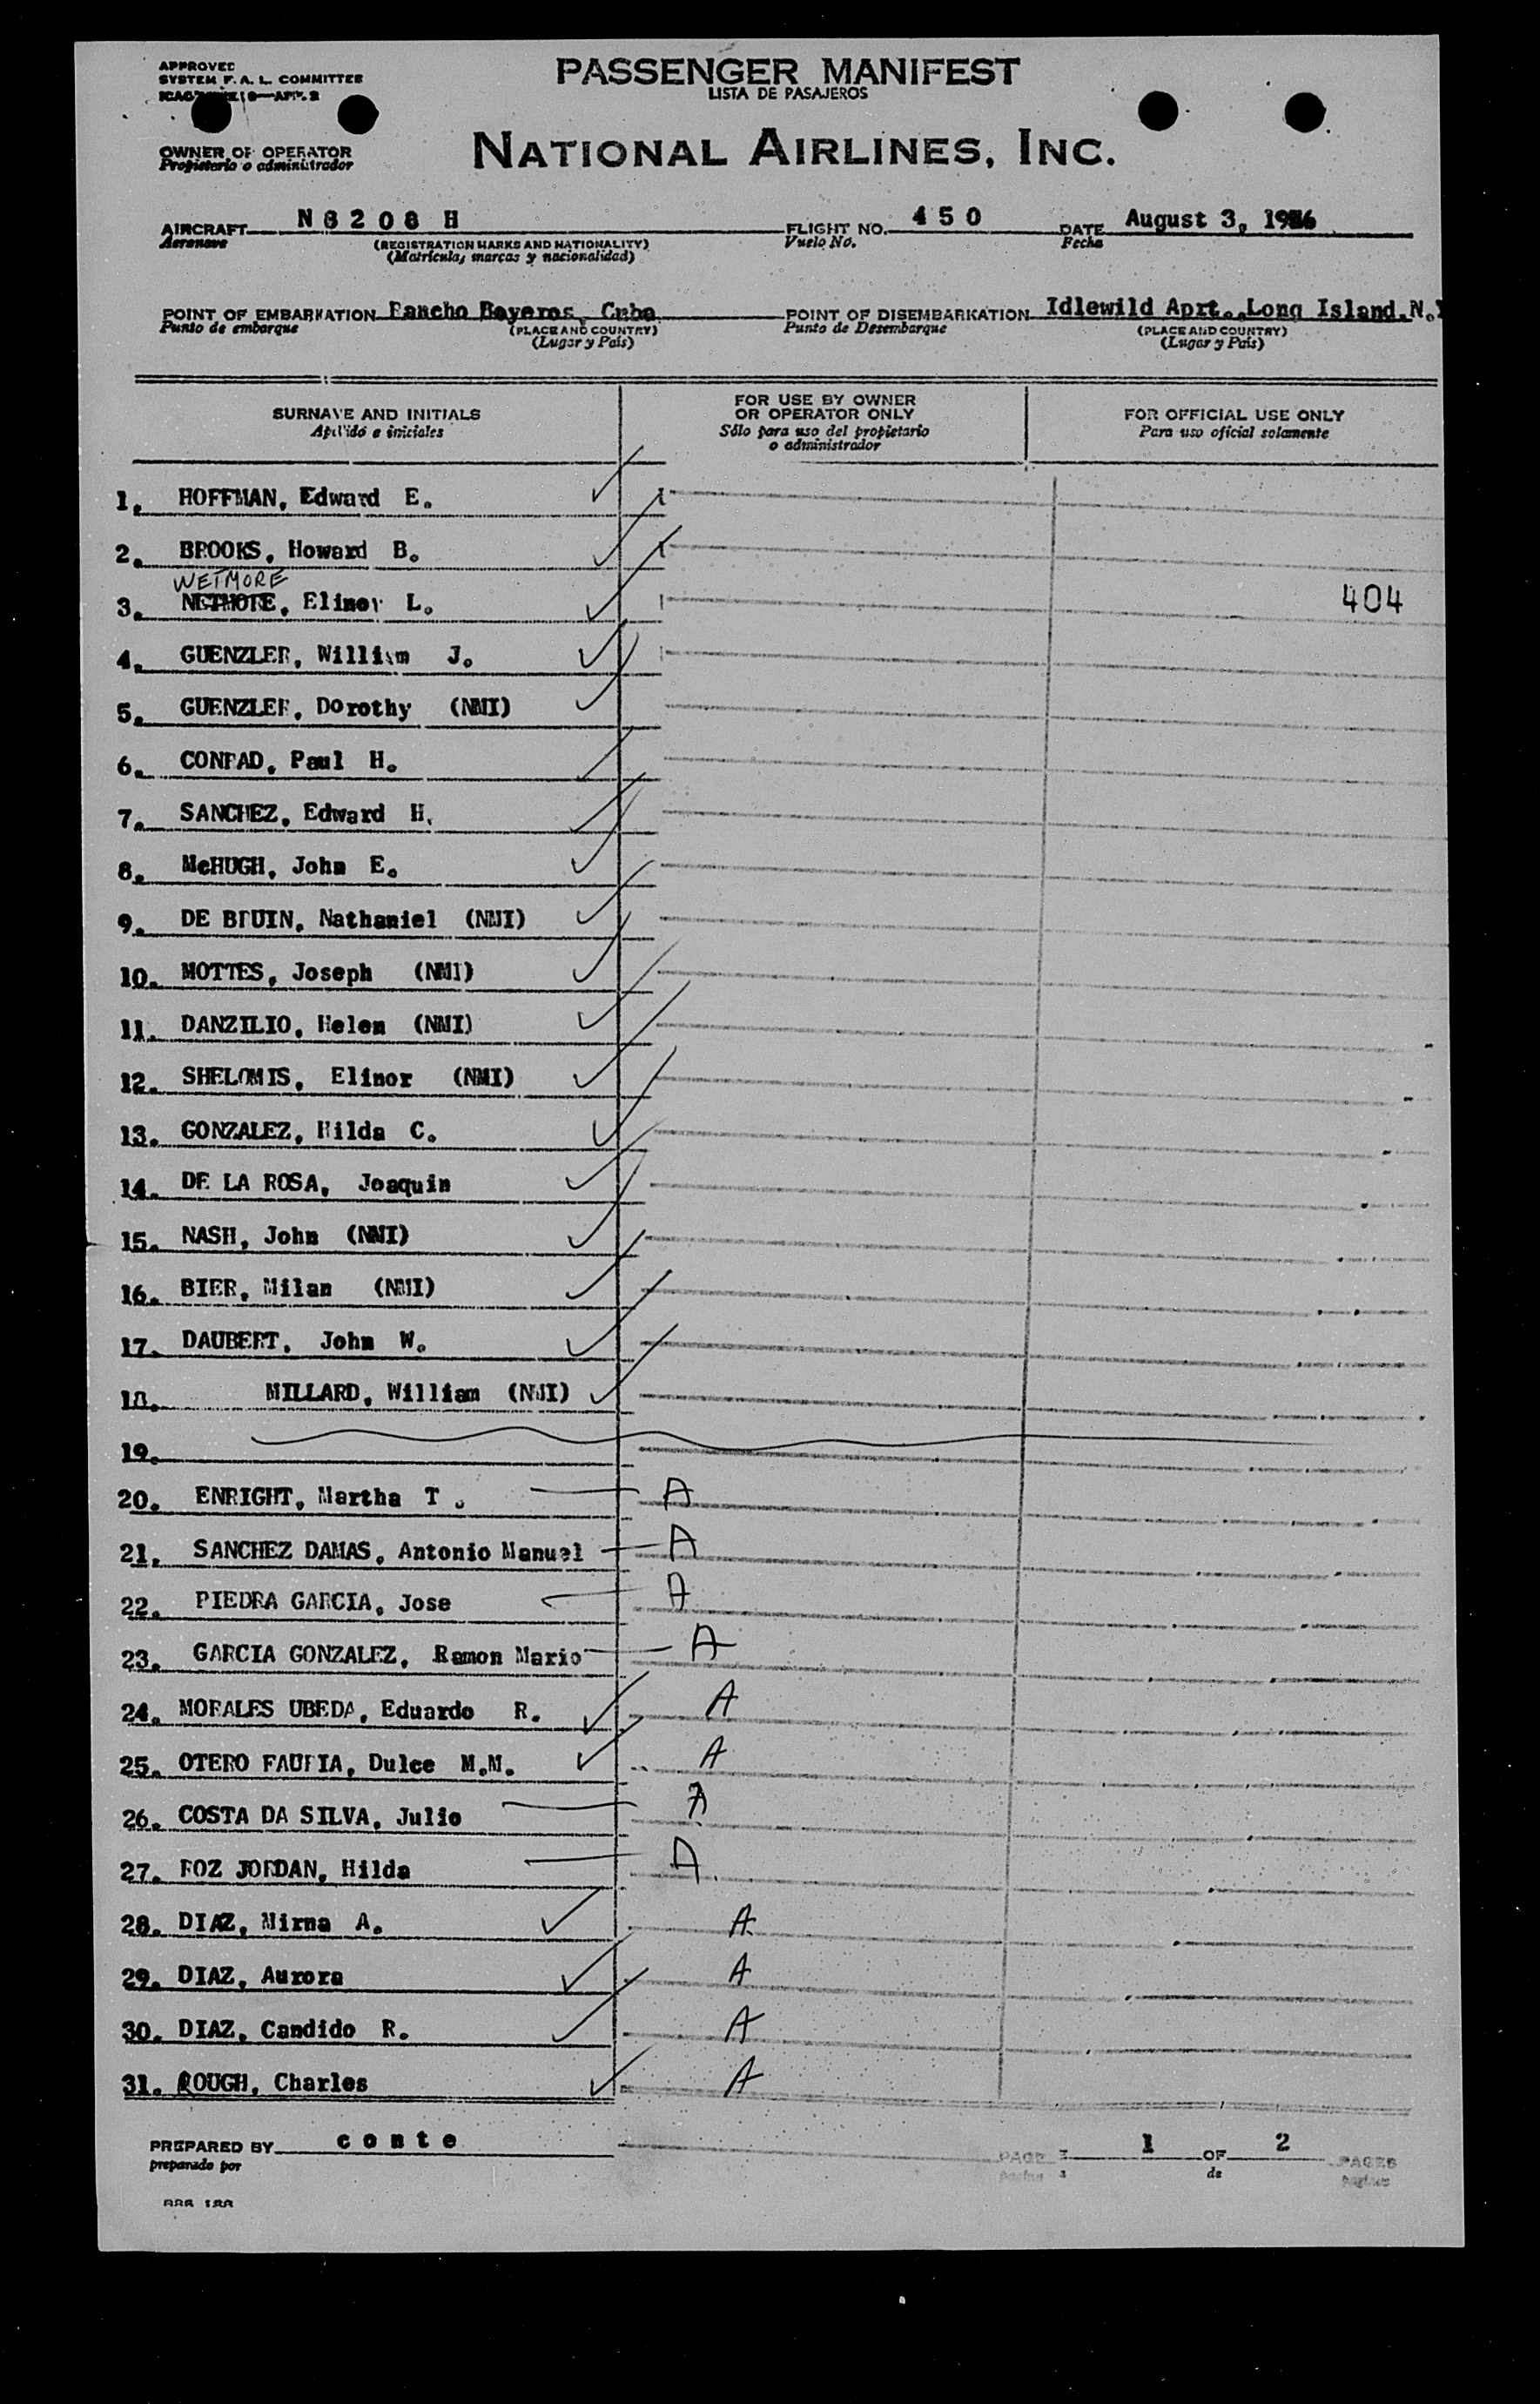 APPROVED
SYSTEM F. A. L. COMMITTEE
PASSENGER MANIFEST
LISTA DE PASAJEROS
OWNER OF OPERATOR
Propietario o administrador
NATIONAL AIRLINES, INC.
AIRCRAFT N 8 2 0 8 H FLIGHT NO. 4 5 0 DATE August 3, 1956
Aeronave (REGISTRATION MARKS AND NATIONALITY) Vuelo No. Fecha
(Matrícula, marcas y nacionalidad)
POINT OF EMBARKATION Rancho Boyeros, Cuba POINT OF DISEMBARKATION Idlewild Aprt., Long Island, N.Y
Punto de embarque (PLACE AND COUNTRY) Punto de Desembarque (PLACE AND COUNTRY)
(Lugar y País) (Lugar y País)
SURNAME AND INITIALS
Apellido e iniciales
FOR USE BY OWNER
OR OPERATOR ONLY
Sólo para uso del propietario
o administrador
FOR OFFICIAL USE ONLY
Para uso oficial solamente
1. HOFFMAN, Edward E.
2. BROOKS, Howard B.
WETMORE
3. NETMOTE, Elinor L. 404
4. GUENZLER, William J.
5. GUENZLER, Dorothy (NMI)
6. CONRAD, Paul H.
7. SANCHEZ, Edward H.
8. McHUGH, John E.
9. DE BRUIN, Nathaniel (NMI)
10. MOTTES, Joseph (NMI)
11. DANZILIO, Helen (NMI)
12. SHELOMIS, Elinor (NMI)
13. GONZALEZ, Hilda C.
14. DE LA ROSA, Joaquin
15. NASH, John (NMI)
16. BIER, Milan (NMI)
17. DAUBERT, John W.
18. MILLARD, William (NMI)
19.
20. ENRIGHT, Martha T. A
21. SANCHEZ DAMAS, Antonio Manuel A
22. PIEDRA GARCIA, Jose A
23. GARCIA GONZALEZ, Ramon Mario A
24. MORALES UBEDA, Eduardo R. A
25. OTERO FAURIA, Dulce M.M. A
26. COSTA DA SILVA, Julio A
27. ROZ JORDAN, Hilda A
28. DIAZ, Mirna A. A
29. DIAZ, Aurora A
30. DIAZ, Candido R. A
31. ROUGH, Charles A
PREPARED BY c o n t e PAGE 1 OF 2 PAGES
preparado por de